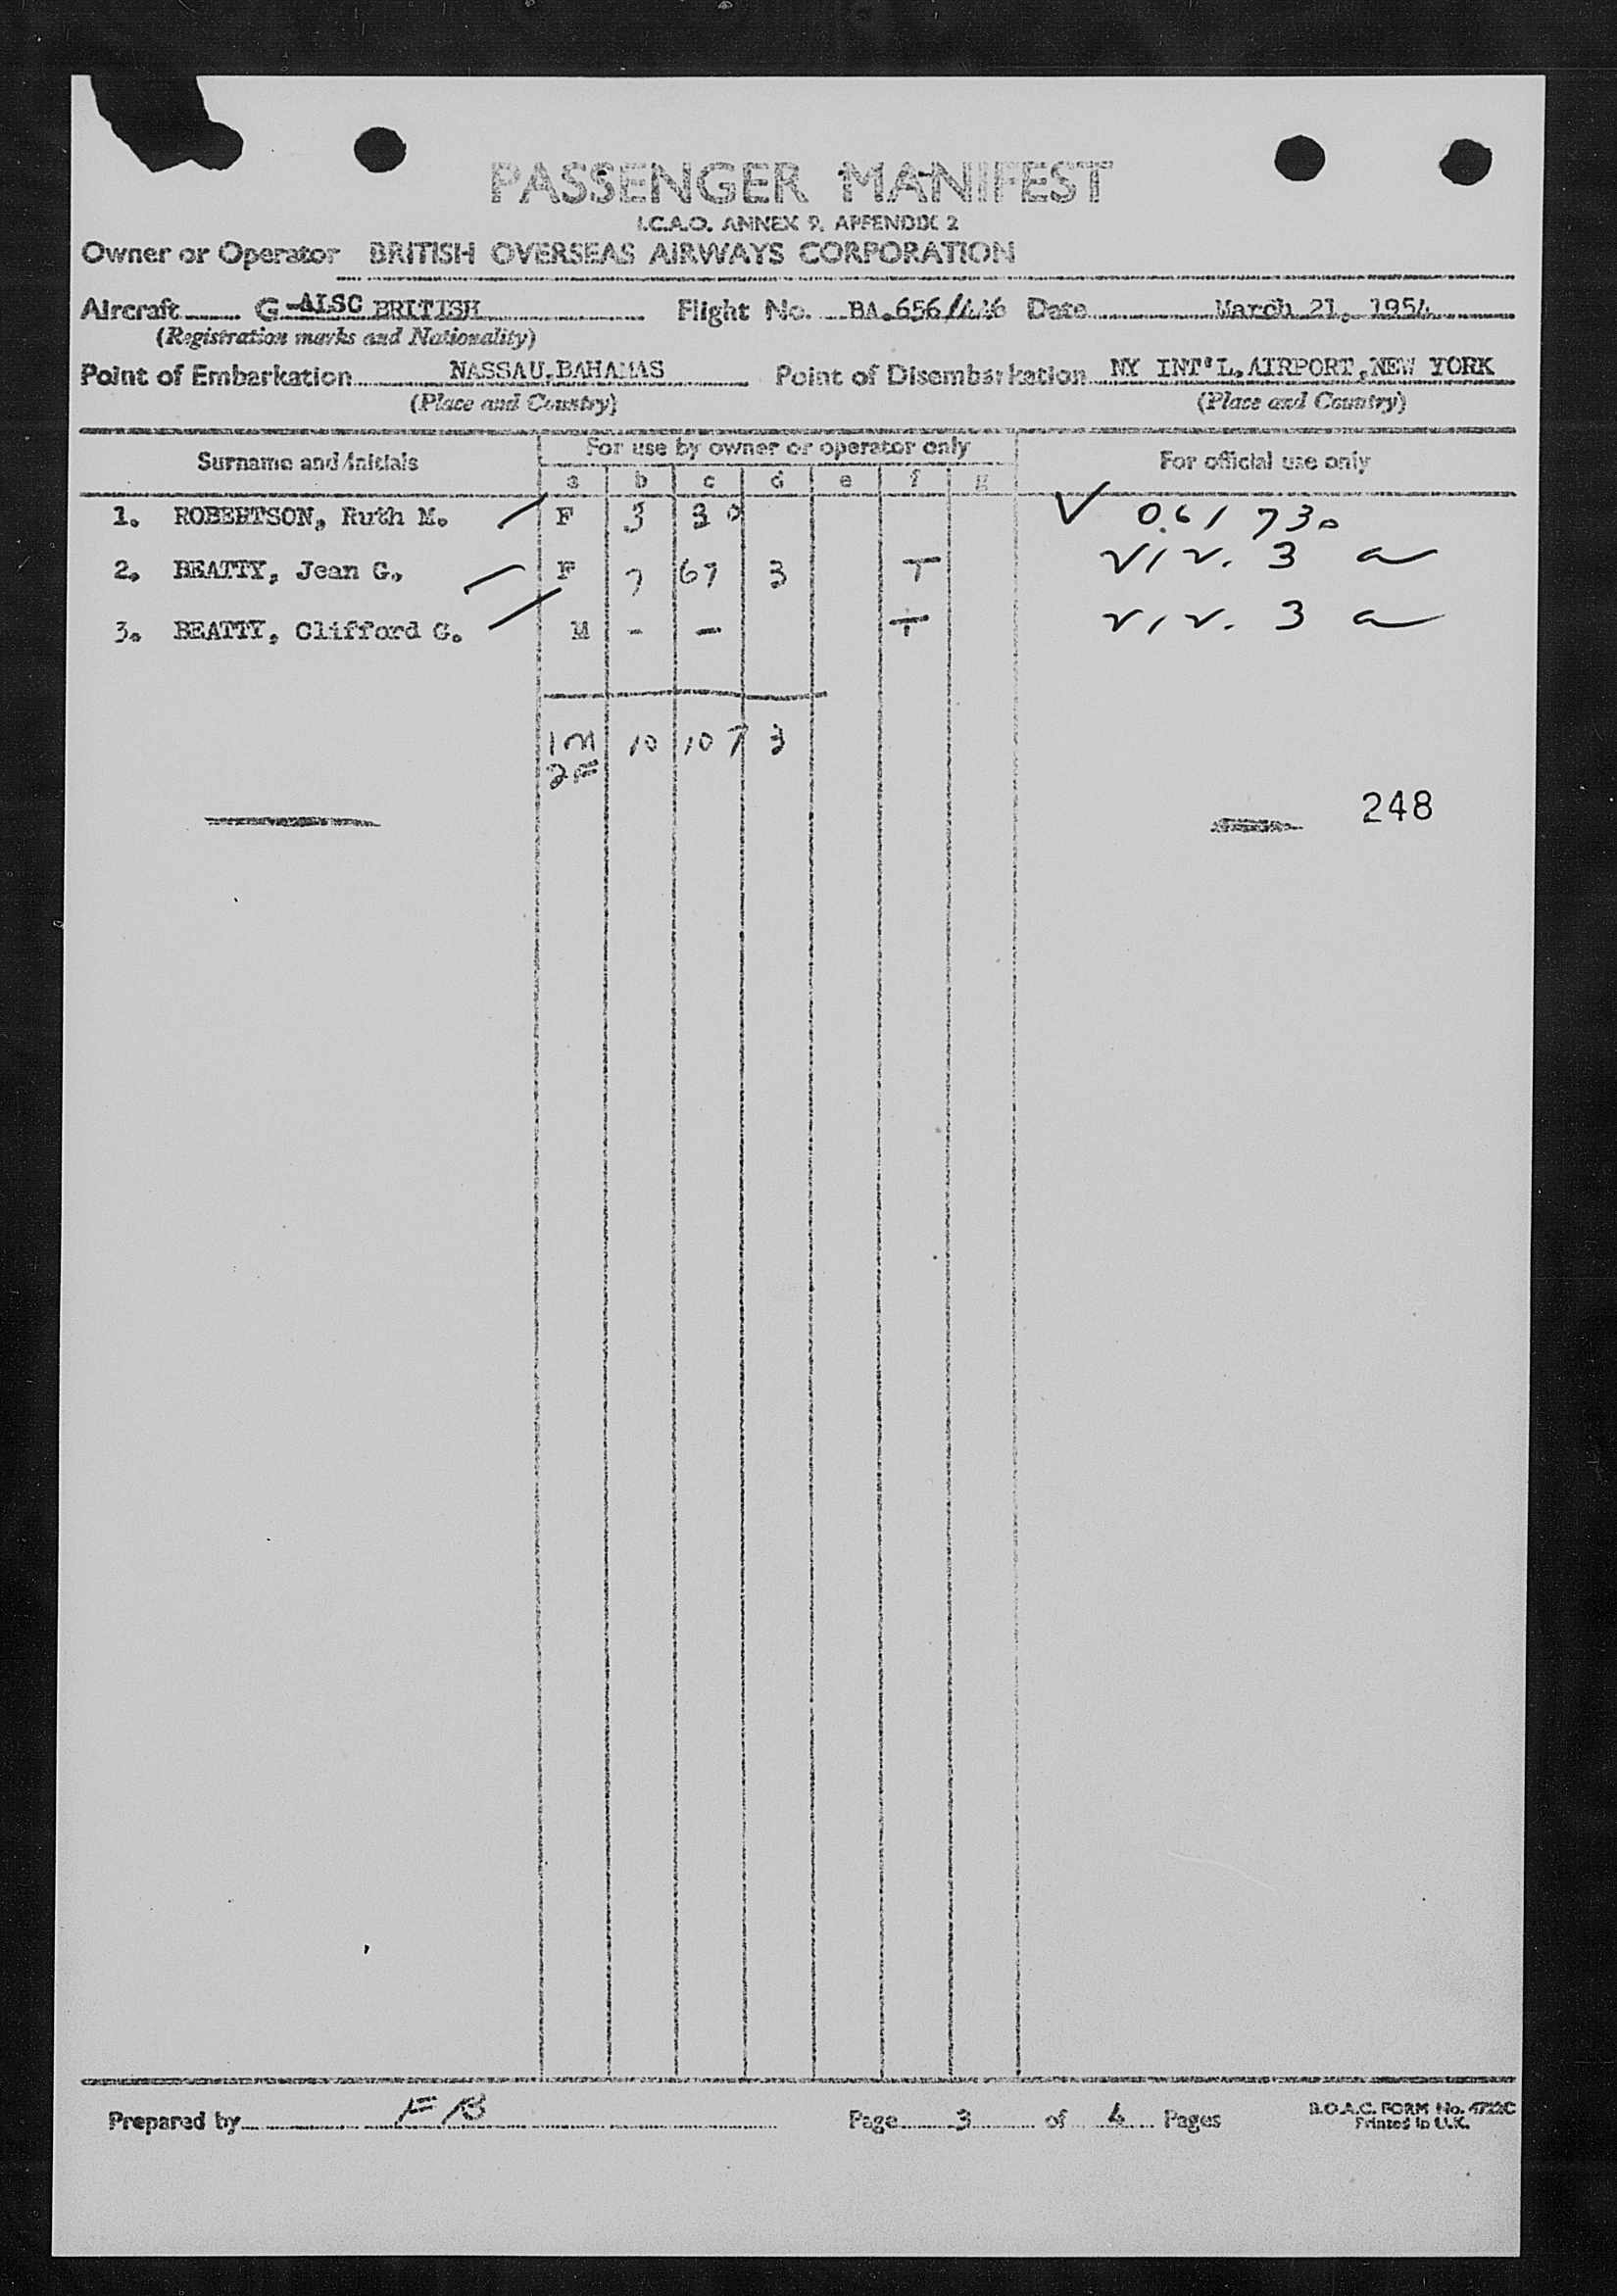 PASSENGER MANIFEST
I.C.A.O. ANNEX 9, APPENDIX 2
Owner or Operator BRITISH OVERSEAS AIRWAYS CORPORATION
Aircraft G-ALSC BRITISH Flight No. BA.656/446 Date March 21, 1954
(Registration marks and Nationality)
Point of Embarkation NASSAU,BAHAMAS Point of Disembarkation NY INT'L.AIRPORT,NEW YORK
(Place and Country) (Place and Country)
Surname and Initials For use by owner or operator only For official use only
a b c d e f g
1. ROBERTSON, Ruth M. F 3 30 061 730
2. BEATTY, Jean G., F 7 67 3 T
3. BEATTY, Clifford G. M - - T
1M 10 107 3
2F
248
Prepared by FB Page 3 of 4 Pages B.O.A.C. FORM No. 4722C
Printed in U.K.